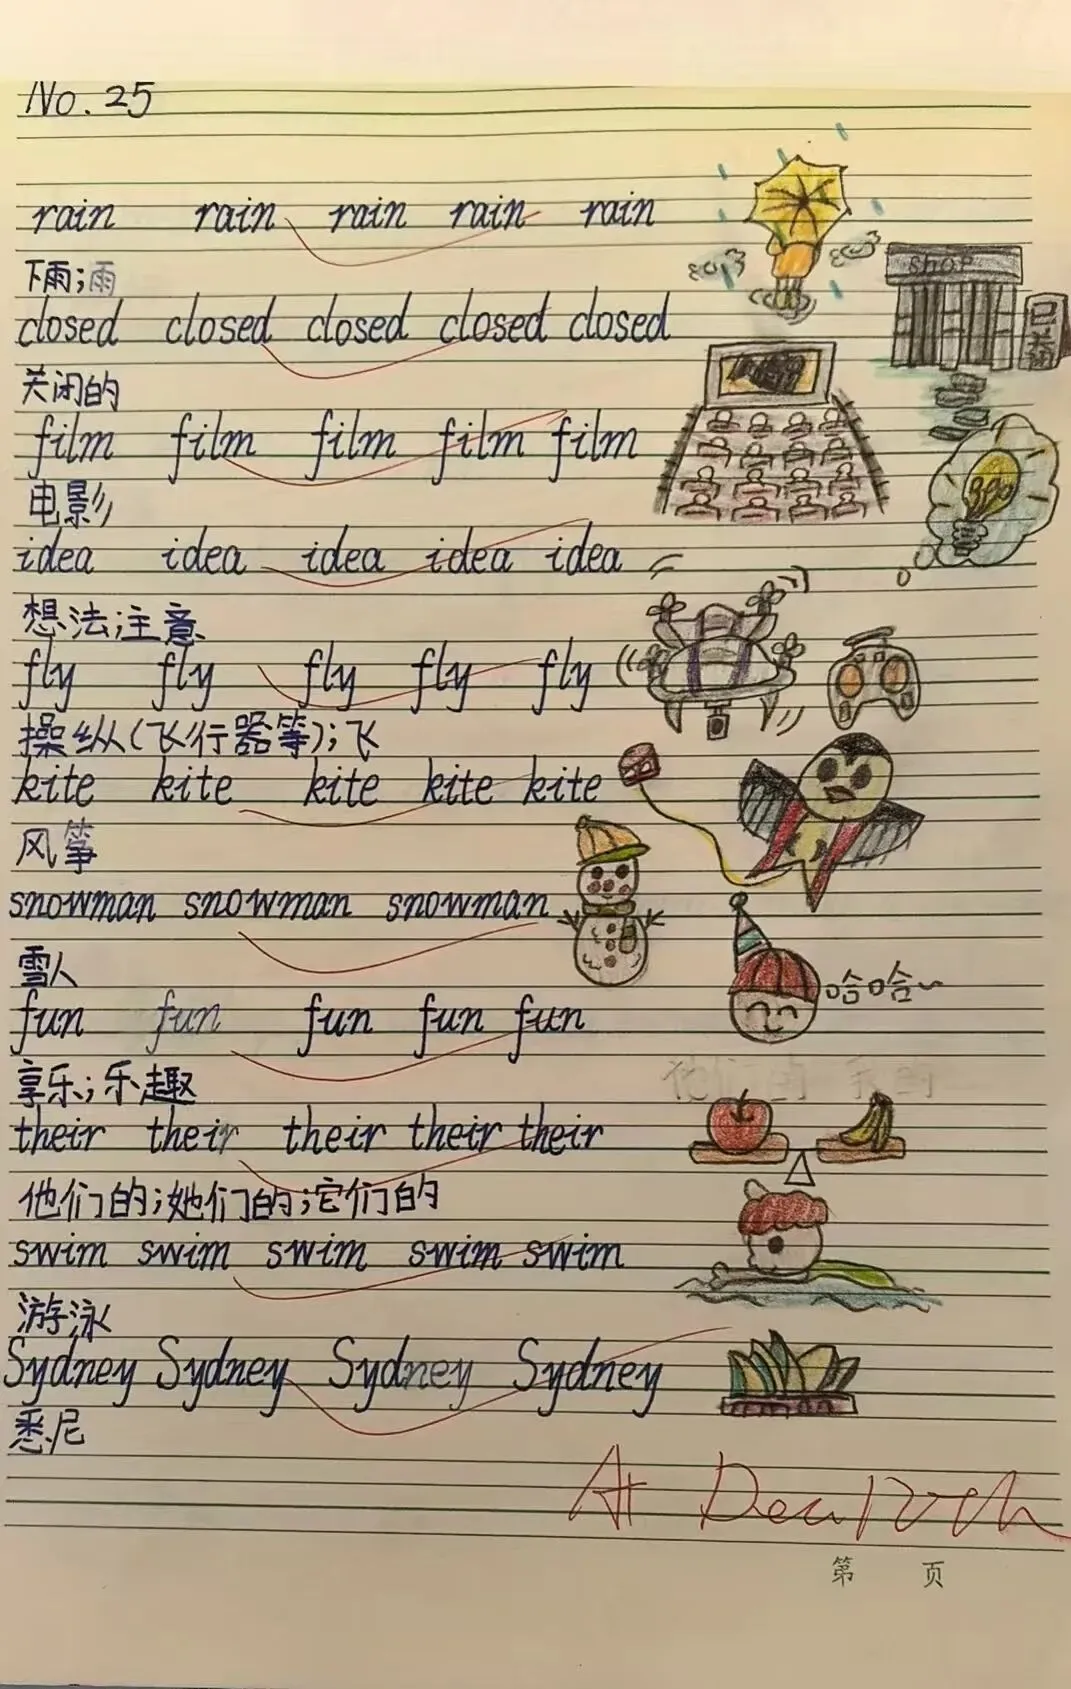 No. 25
rain rain rain rain rain
下雨;雨
SHOP
closed closed closed closed closed
已关闭
关闭的
film film film film film
电影
idea idea idea idea idea
想法;主意
fly fly fly fly fly
操纵(飞行器等);飞
kite kite kite kite kite
风筝
snowman snowman snowman
雪人
哈哈~
fun fun fun fun fun
享乐;乐趣
their their their their their
他们的;她们的;它们的
swim swim swim swim swim
游泳
Sydney Sydney Sydney Sydney
悉尼
A+ Dec 12th
第 页